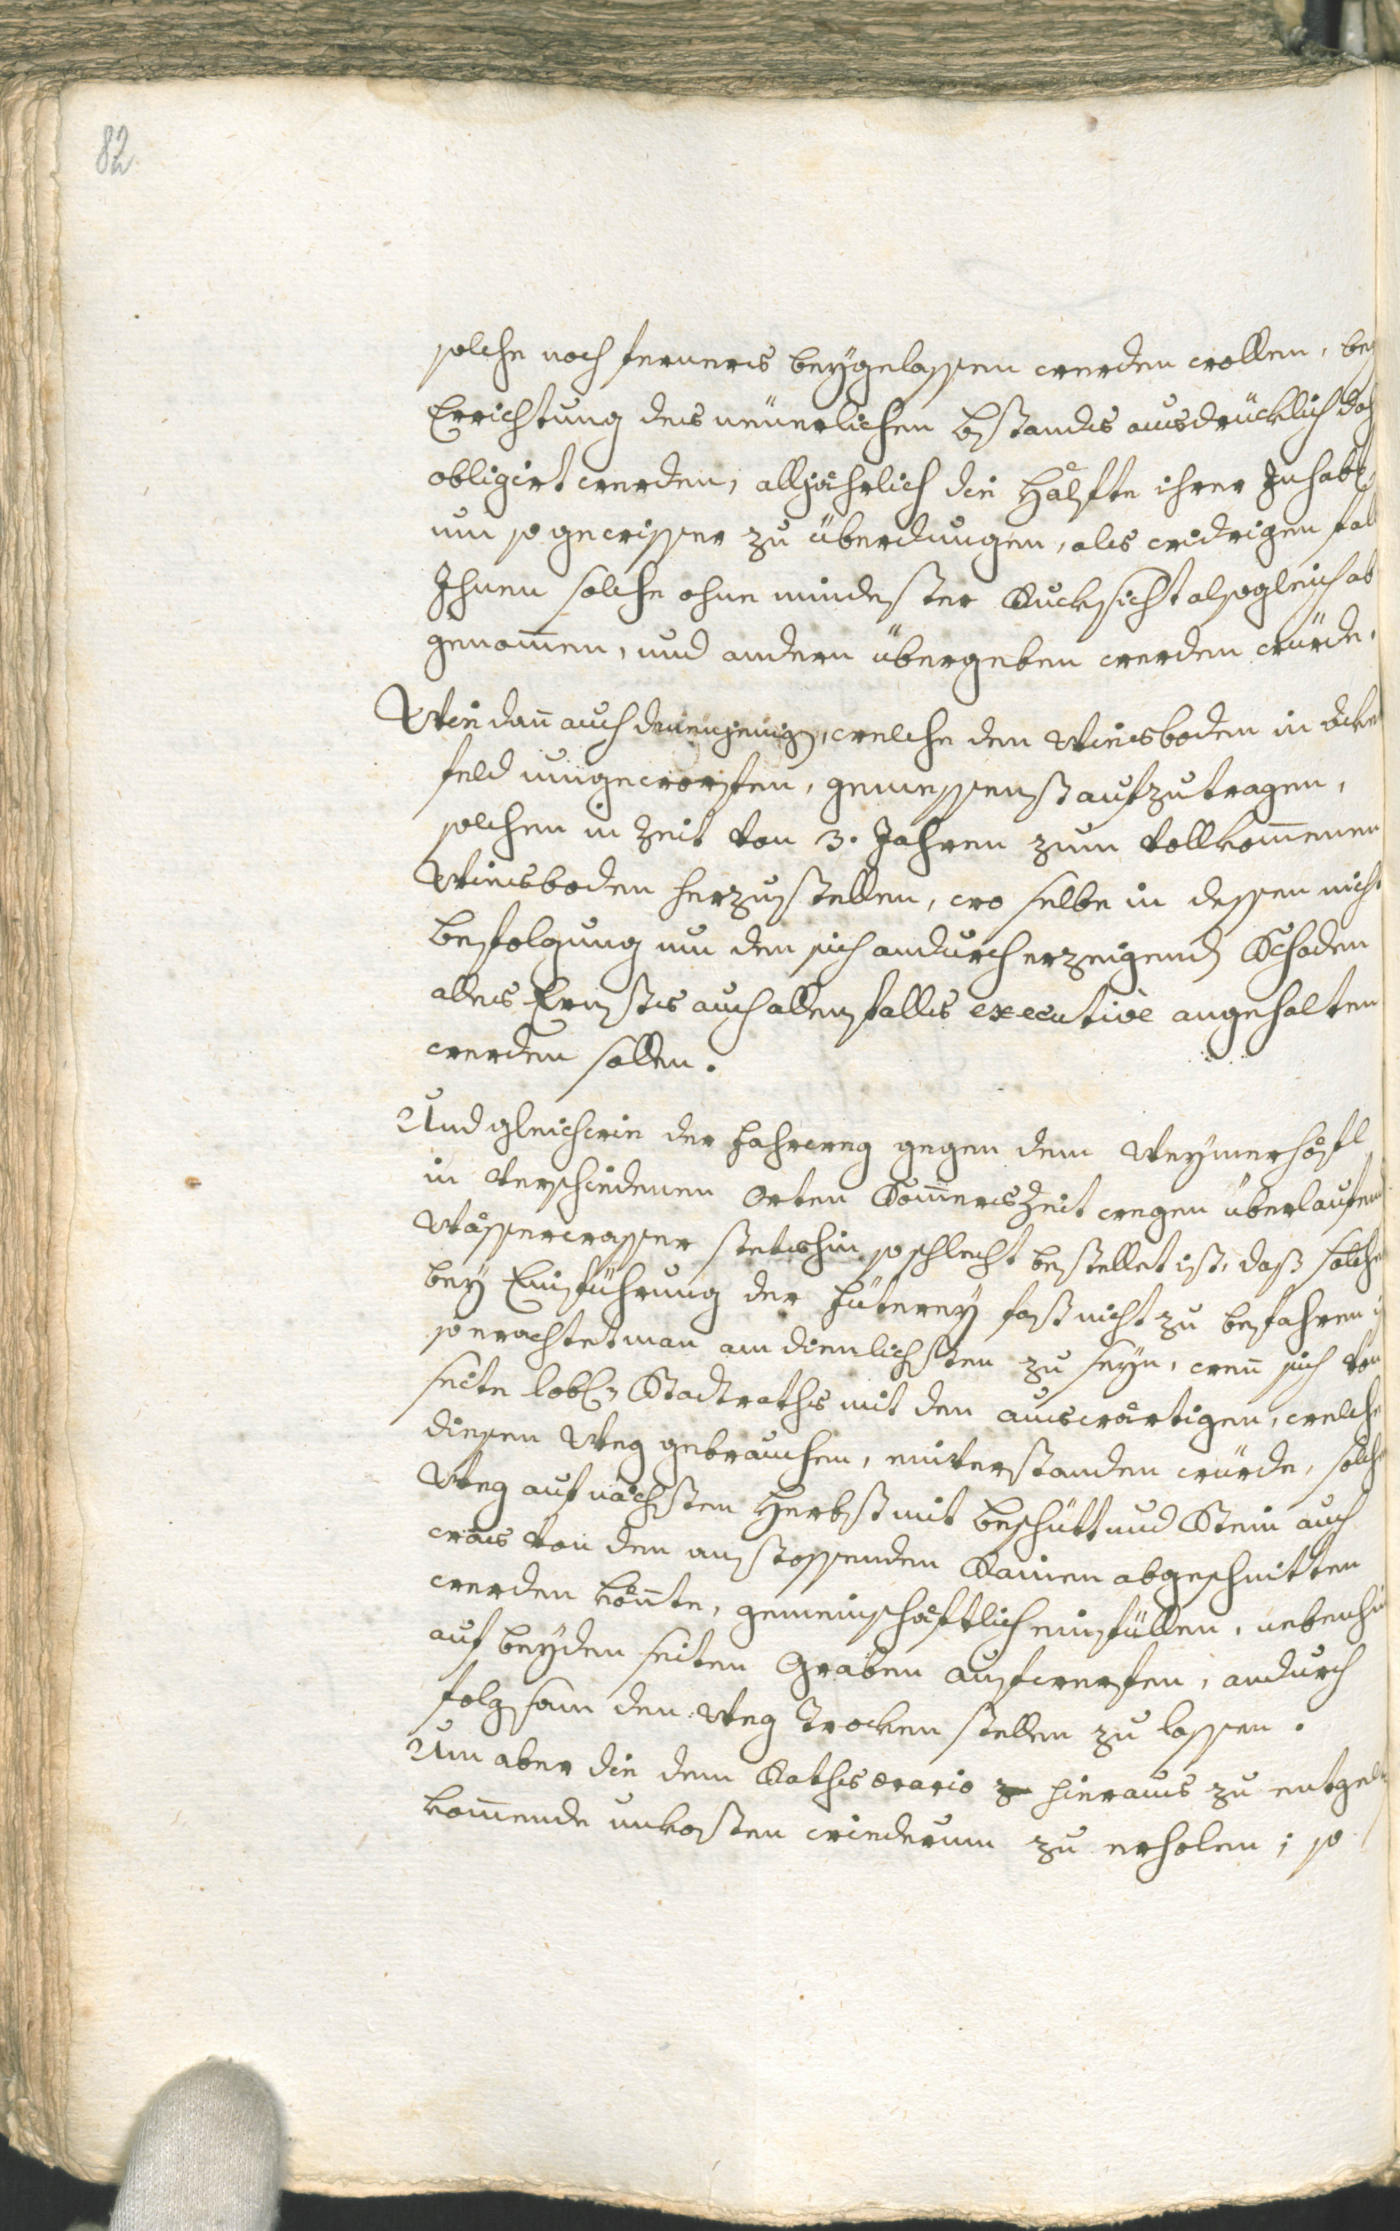 82
solche noch ferners beÿgelassen werden wollen, beÿ
Errichtung des neüerlichen bstandts ausdrücklich dah
obligirt werden, alljährlich die Hälfte ihrer Inhab
um so gewisser zu überdungen, als widrigen fal
Ihnen solche ohne mindester Rucksicht alsogleich ab
genom̄en, und andern übergeben werden würde.
Wie dan̄ auch denenjenig, welche den Wiesboden in Acker
feld umgeworfen, gemessenst aufzutragen,
solchen in Zeit von 3. Jahren zum vollkom̄enen
Wiesboden herzustellen, wo selbe in dessen nicht
befolgung um den sich andurch erzeigend Schaden
alles Ernstes auch allenfalls executive angehalten
werden sollen.
Und gleichwie der fahrweg gegen dem Weÿmerhöfl
in verschiedenen Orten Som̄erszeit wegen überlaufend
Wässerwasser stetshin so schlecht bestellet ist, daß solche
beÿ Einführung der fütereÿ fast nicht zu befahren
so erachtet man am dienlichsten zu seÿn, wen̄ sich von
seite lobl. Stadtraths mit den auswärtigen, welche
diesen Weg gebrauchen, einverstanden würde, solche
Weg auf nächsten Herbst mit beschütt und Stein auch
was von den anstossenden Rainen abgeschnitten
werden kön̄te, gemeinschäftlich einfüllen, nebenhin
auf beÿden seiten Graben aufwerfen, andurch
folgsam den Weg Trocken stellen zu lassen.
Um aber die dem Raths ærario hieraus zu entgel
kom̄ende unkosten wiederum zu erholen; so